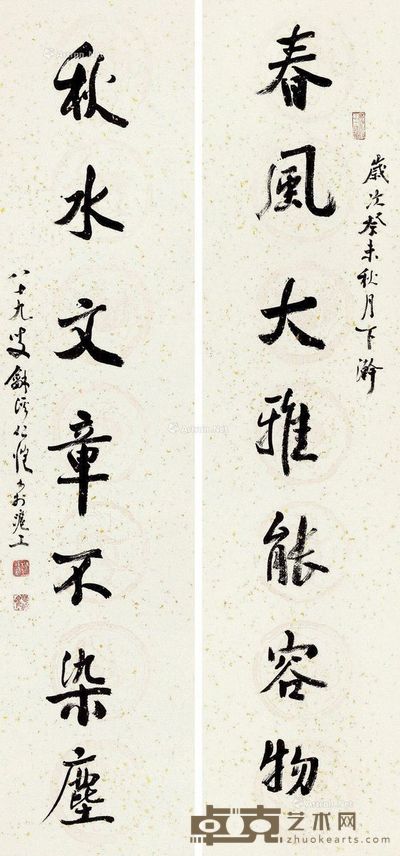 春風大雅能容物
歲次癸未秋月下澣
秋水文章不染塵
八十九叟龢溪仁愷書於滬上
卓克艺术网
zhuokearts.com